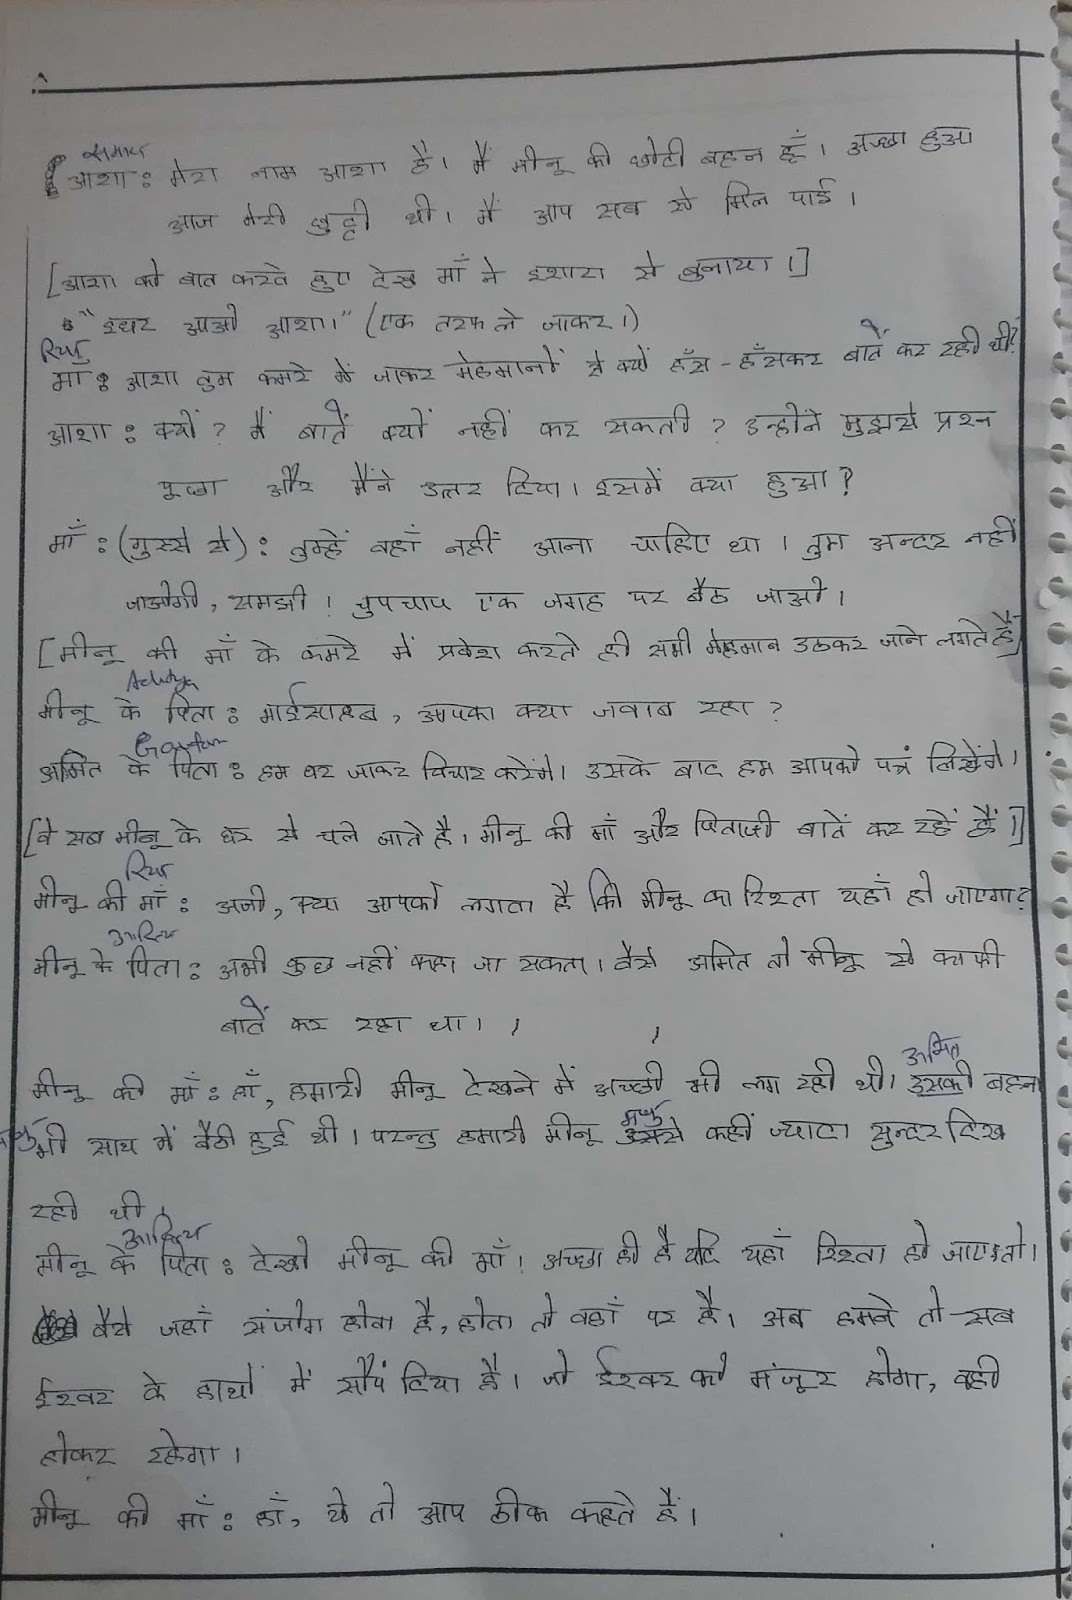 आशा : मेरा नाम आशा है। मैं मीनू की छोटी बहन हूँ। अच्छा हुआ
आज मेरी छुट्टी थी। मैं आप सब से मिल पाई।
[आशा को बात करते हुए देख माँ ने इशारा से बुलाया।]
"इधर आओ आशा।" (एक तरफ ले जाकर।)
माँ : आशा तुम कमरे में जाकर मेहमानों से क्यों हँस-हँसकर बातें कर रही थी?
आशा : क्यों? मैं बातें क्यों नहीं कर सकती? इन्होंने मुझसे प्रश्न
पूछा और मैंने उत्तर दिया। इसमें क्या हुआ?
माँ : (गुस्से से) : तुम्हें वहाँ नहीं आना चाहिए था। तुम अन्दर नहीं
जाओगी, समझी! चुपचाप एक जगह पर बैठ जाओ।
[मीनू की माँ के कमरे में प्रवेश करते ही सभी मेहमान उठकर जाने लगते है]
Aditya
मीनू के पिता : भाईसाहब, आपका क्या जवाब रहा?
Gautam
अमित के पिता : हम घर जाकर विचार करेंगे। उसके बाद हम आपको पत्रं लिखेंगे।
[वे सब मीनू के घर से चले जाते है। मीनू की माँ और पिताजी बातें कर रहें हैं।]
मीनू की माँ : अजी, क्या आपको लगता है कि मीनू का रिश्ता यहाँ हो जाएगा?
मीनू के पिता : अभी कुछ नहीं कहा जा सकता। वैसे अमित तो मीनू से काफी
बातें कर रहा था।
अमित
मीनू की माँ : हाँ, हमारी मीनू देखने में अच्छी भी लग रही थी। इसकी बहन
भी साथ में बैठी हुई थी। परन्तु हमारी मीनू उससे कहीं ज्यादा सुन्दर दिख
रही थी।
आदित्य
मीनू के पिता : देखो मीनू की माँ! अच्छा ही है यदि यहाँ रिश्ता हो जाए तो।
वैसे जहाँ संजोग होता है, होता तो वहाँ पर है। अब हमने तो सब
ईश्वर के हाथों में सौंप दिया है। जो ईश्वर को मंजूर होगा, वही
होकर रहेगा।
मीनू की माँ : हाँ, ये तो आप ठीक कहते हैं।